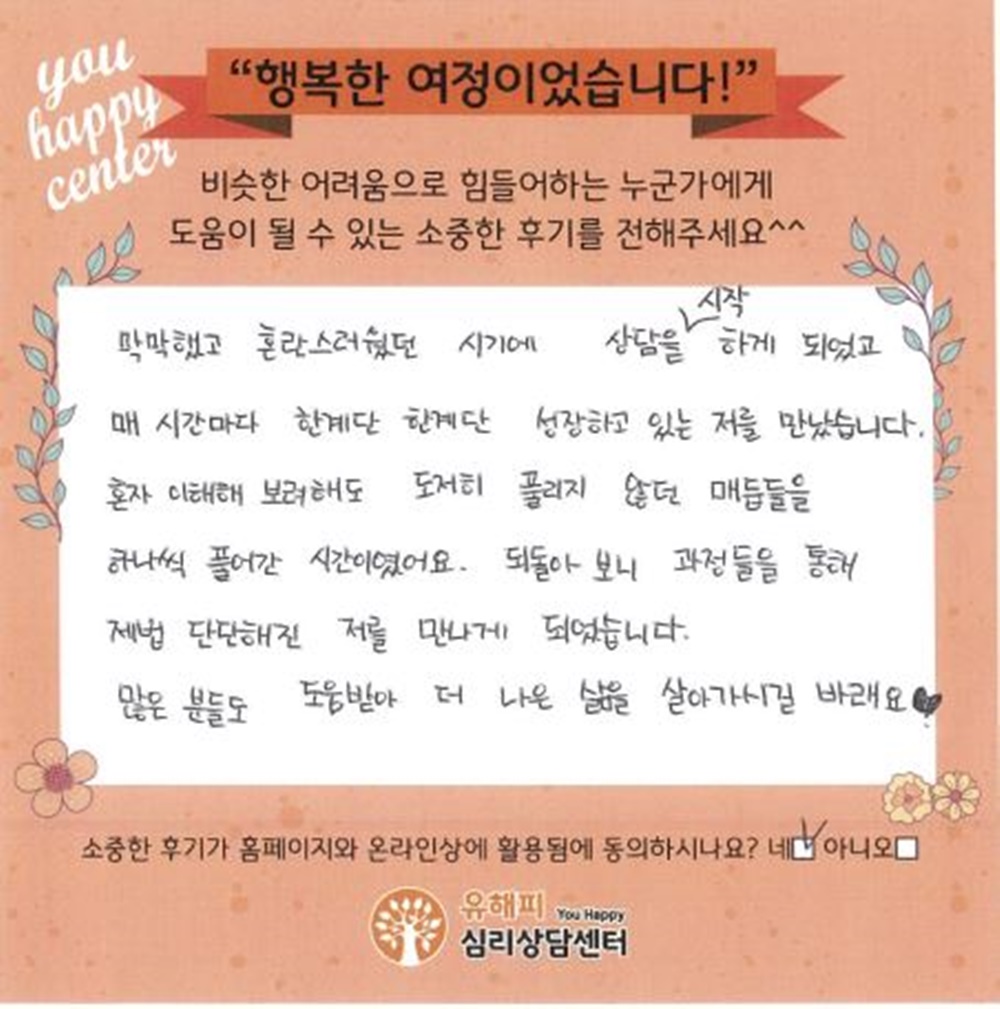 you
happy
center
“행복한 여정이었습니다!”
비슷한 어려움으로 힘들어하는 누군가에게
도움이 될 수 있는 소중한 후기를 전해주세요^^
막막했고 혼란스러웠던 시기에 상담을 시작 하게 되었고
매 시간마다 한계단 한계단 성장하고 있는 저를 만났습니다.
혼자 이해해 보려해도 도저히 풀리지 않던 매듭들을
하나씩 풀어간 시간이였어요. 되돌아 보니 과정들을 통해
제법 단단해진 저를 만나게 되었습니다.
많은 분들도 도움받아 더 나은 삶을 살아가시길 바래요♥
소중한 후기가 홈페이지와 온라인상에 활용됨에 동의하시나요? 네☑ 아니오☐
유해피 You Happy
심리상담센터